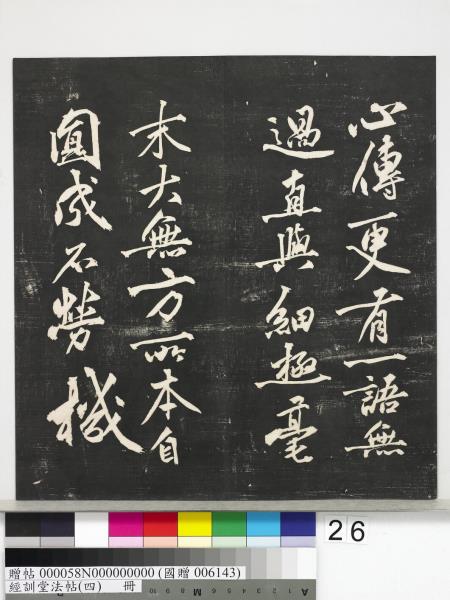 心傳更有一語無
過直與細極毫
末大無方所本自
圓成不勞機
26
贈帖 000058N000000000 (國贈 006143)
經訓堂法帖(四) 冊